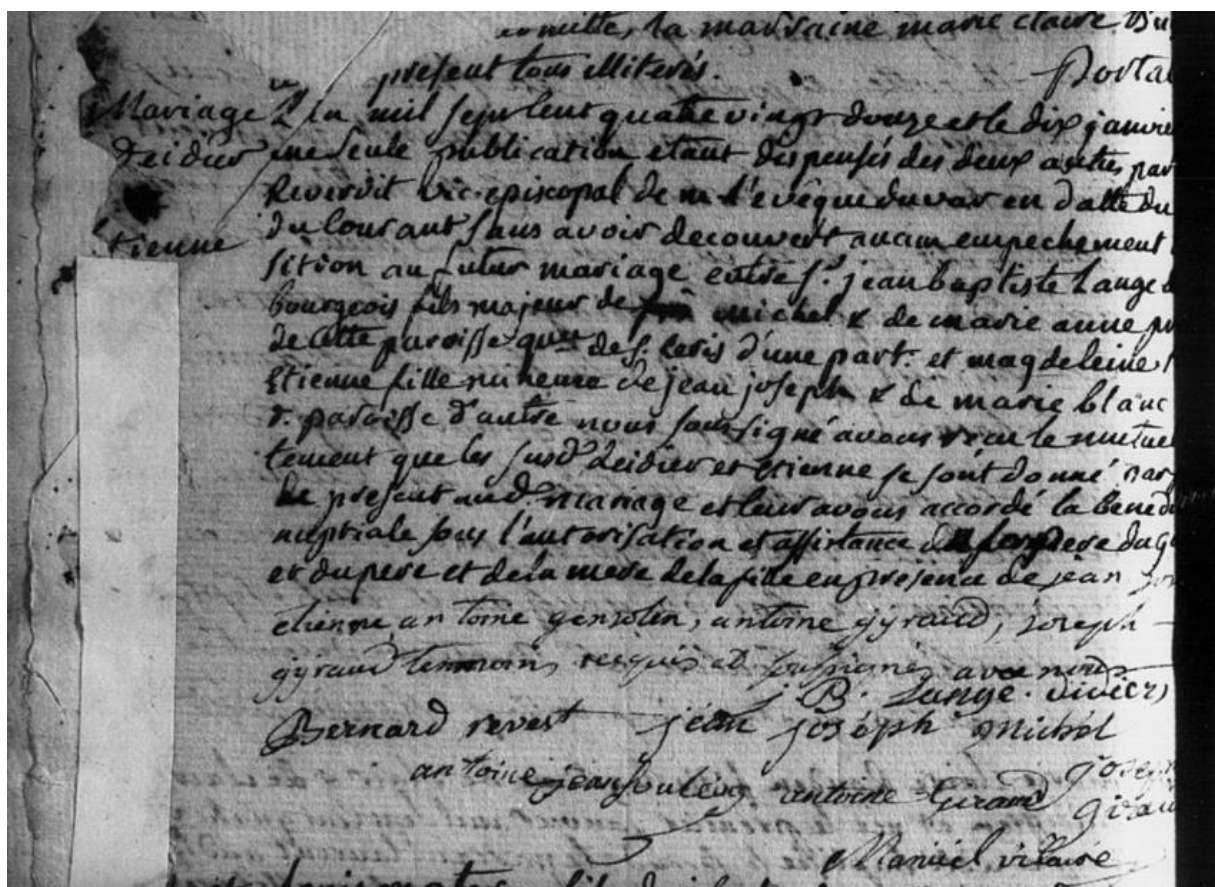 la marraine marie claire
present tous illiterés.
Mariage L'an mil sept cent quatre vingt douze et le dix janvie
Deidier une seule publication etant dispensés des deux autres par
Reverdit vic. episcopal de m. l'evêque du var en datte du
tienne du courant sans avoir decouvert aucun empechement
sition au futur mariage entre Sr. jean baptiste Lange
bourgeois fils majeur de michel & de marie anne
de cette paroisse d'une part. et magdeleine
Etienne fille mineure de jean joseph & de marie blanc
d. paroisse d'autre nous soussigné avons recu le mutuel
tement que les susd. deidier et etienne se sont donné par
de present aud. mariage et leur avons accordé la bened
nuptiale sous l'autorisation et assistance du pere du
et du pere et de la mere de la fille en presence de jean
etienne antoine gensolen, antoine gyraud, joseph
gyraud temoins requis et soussignés avec nous
j B. Lange. didier
Bernard revest jean joséph michel
antoine antoine Giraud joseph
girau